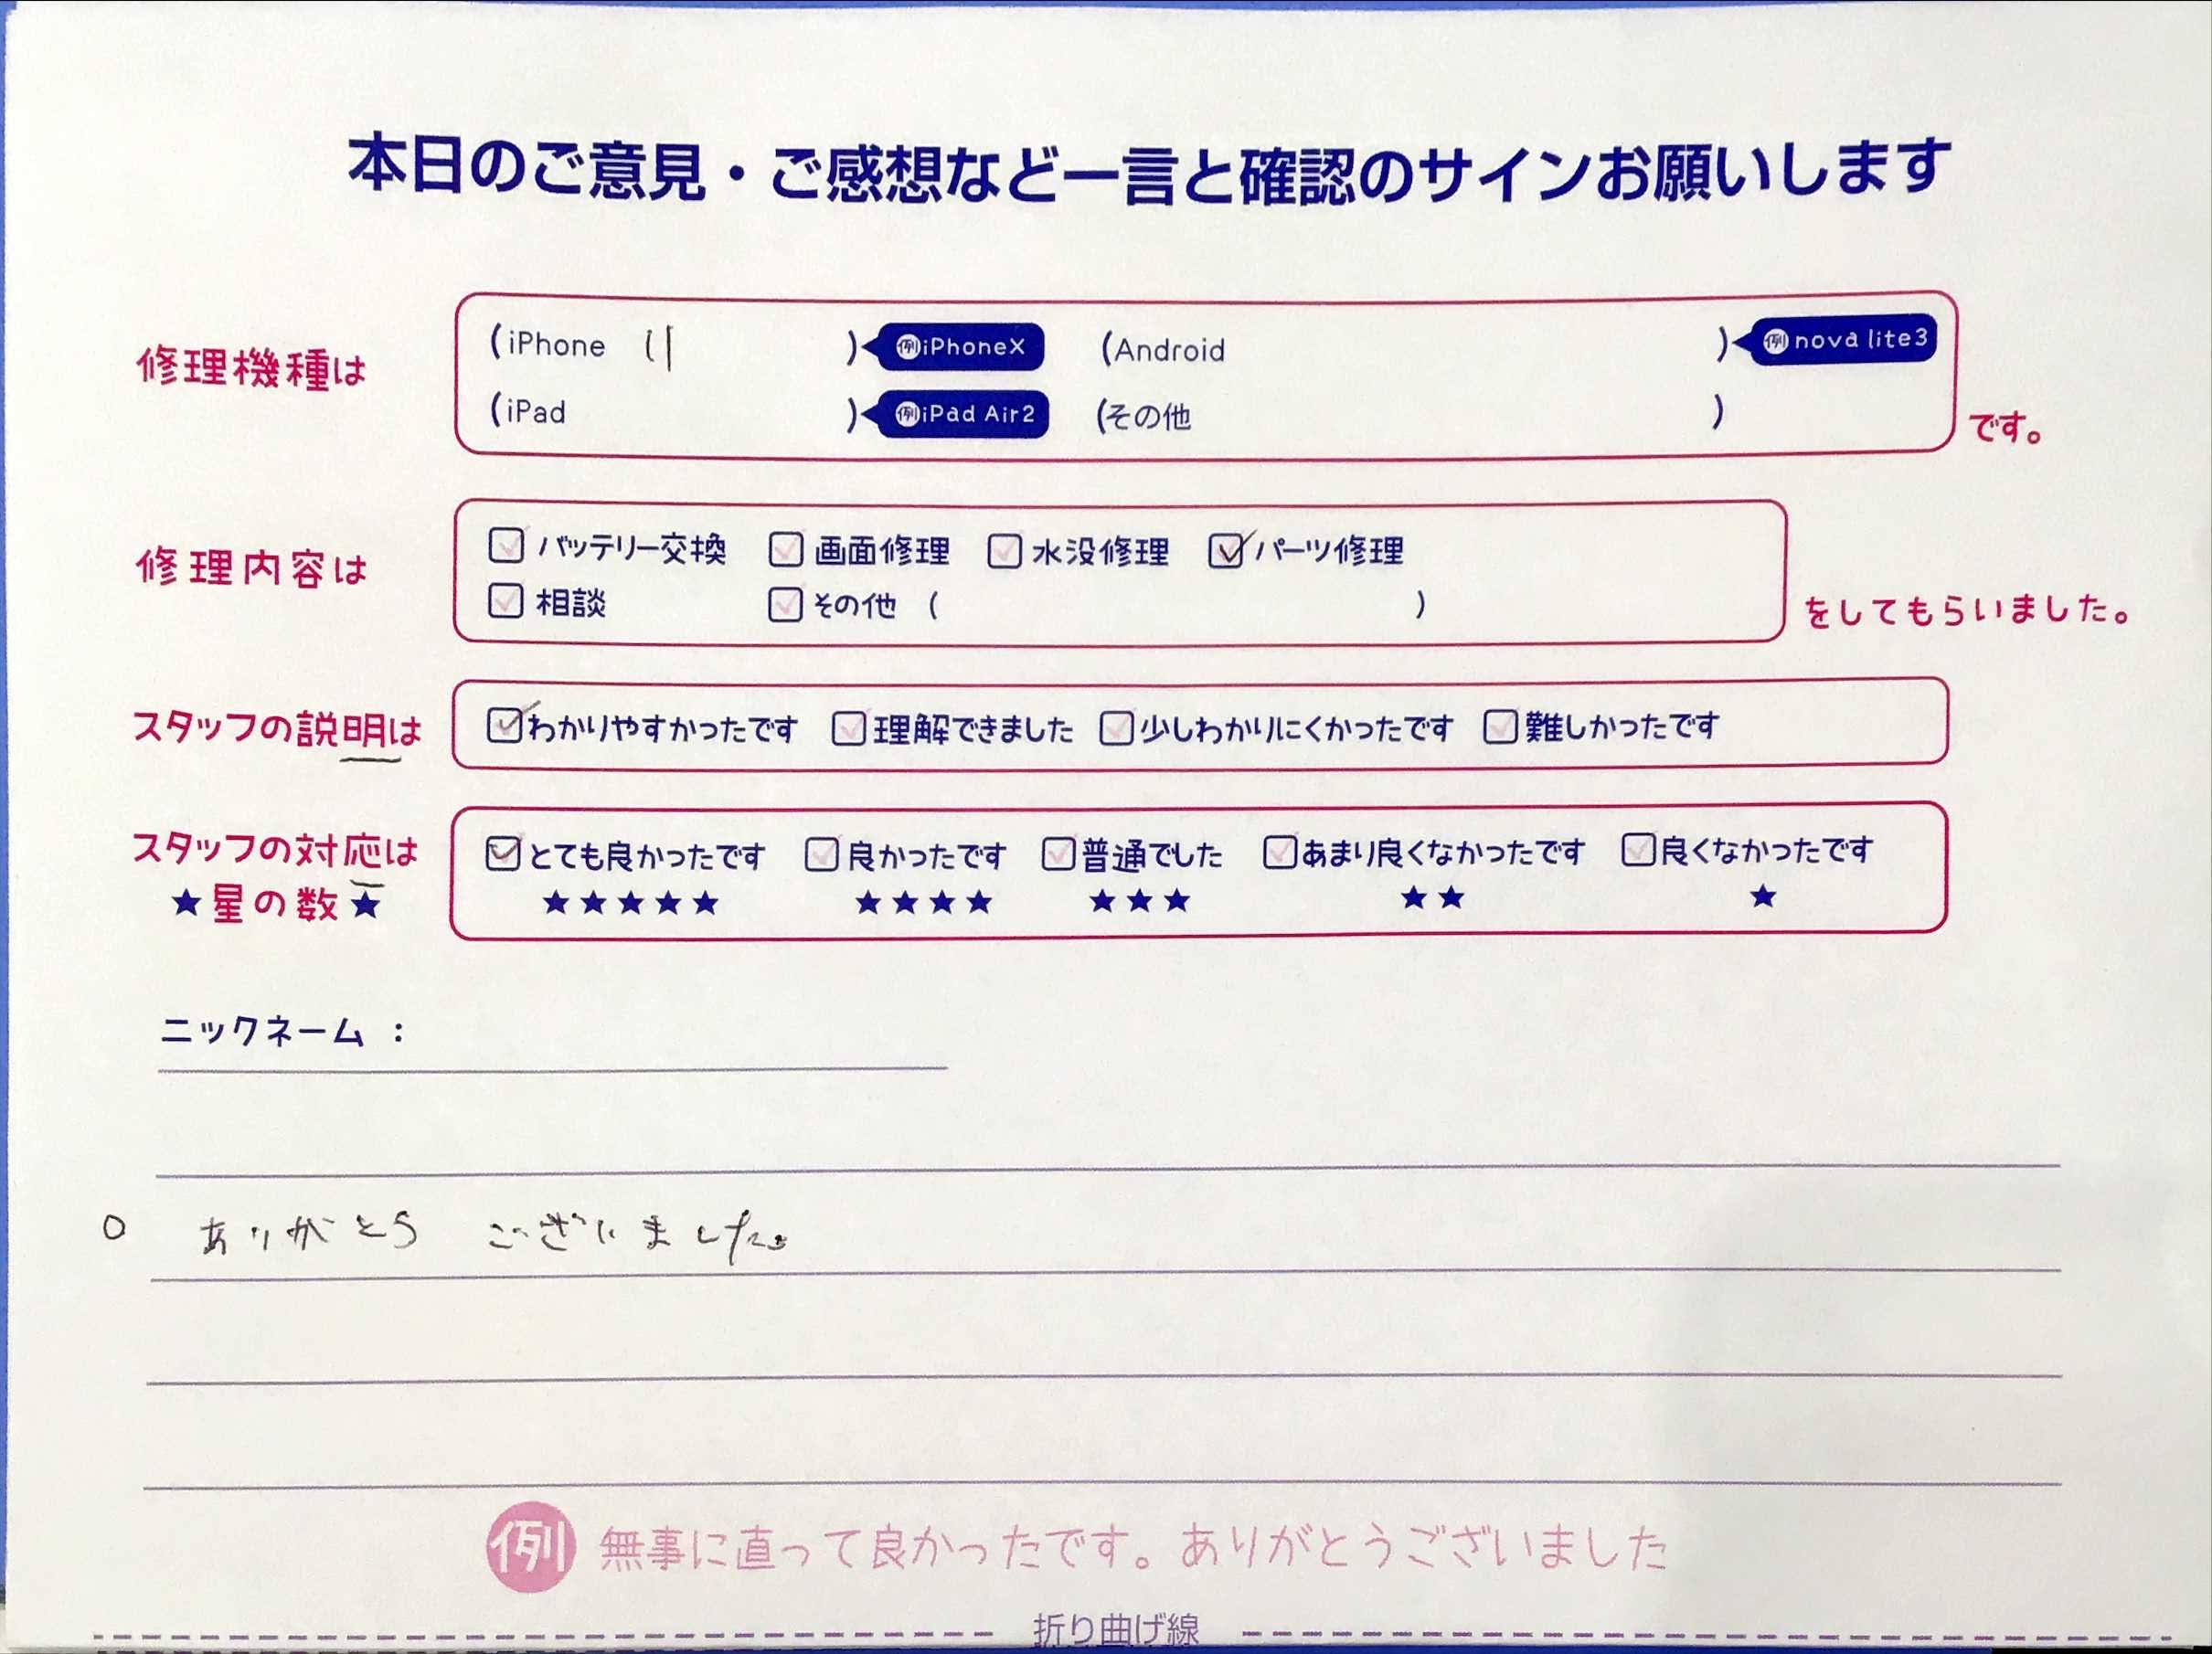 本日のご意見・ご感想など一言と確認のサインお願いします
修理機種は
(iPhone 11 ) 例iPhoneX (Android ) 例nova lite3
(iPad ) 例iPad Air2 (その他 ) です。
修理内容は
バッテリー交換 画面修理 水没修理 パーツ修理
相談 その他 ( ) をしてもらいました。
スタッフの説明は わかりやすかったです 理解できました 少しわかりにくかったです 難しかったです
スタッフの対応は とても良かったです 良かったです 普通でした あまり良くなかったです 良くなかったです
★星の数★ ★★★★★ ★★★★ ★★★ ★★ ★
ニックネーム :
○ ありがとう ございました。
例 無事に直って良かったです。ありがとうございました
折り曲げ線